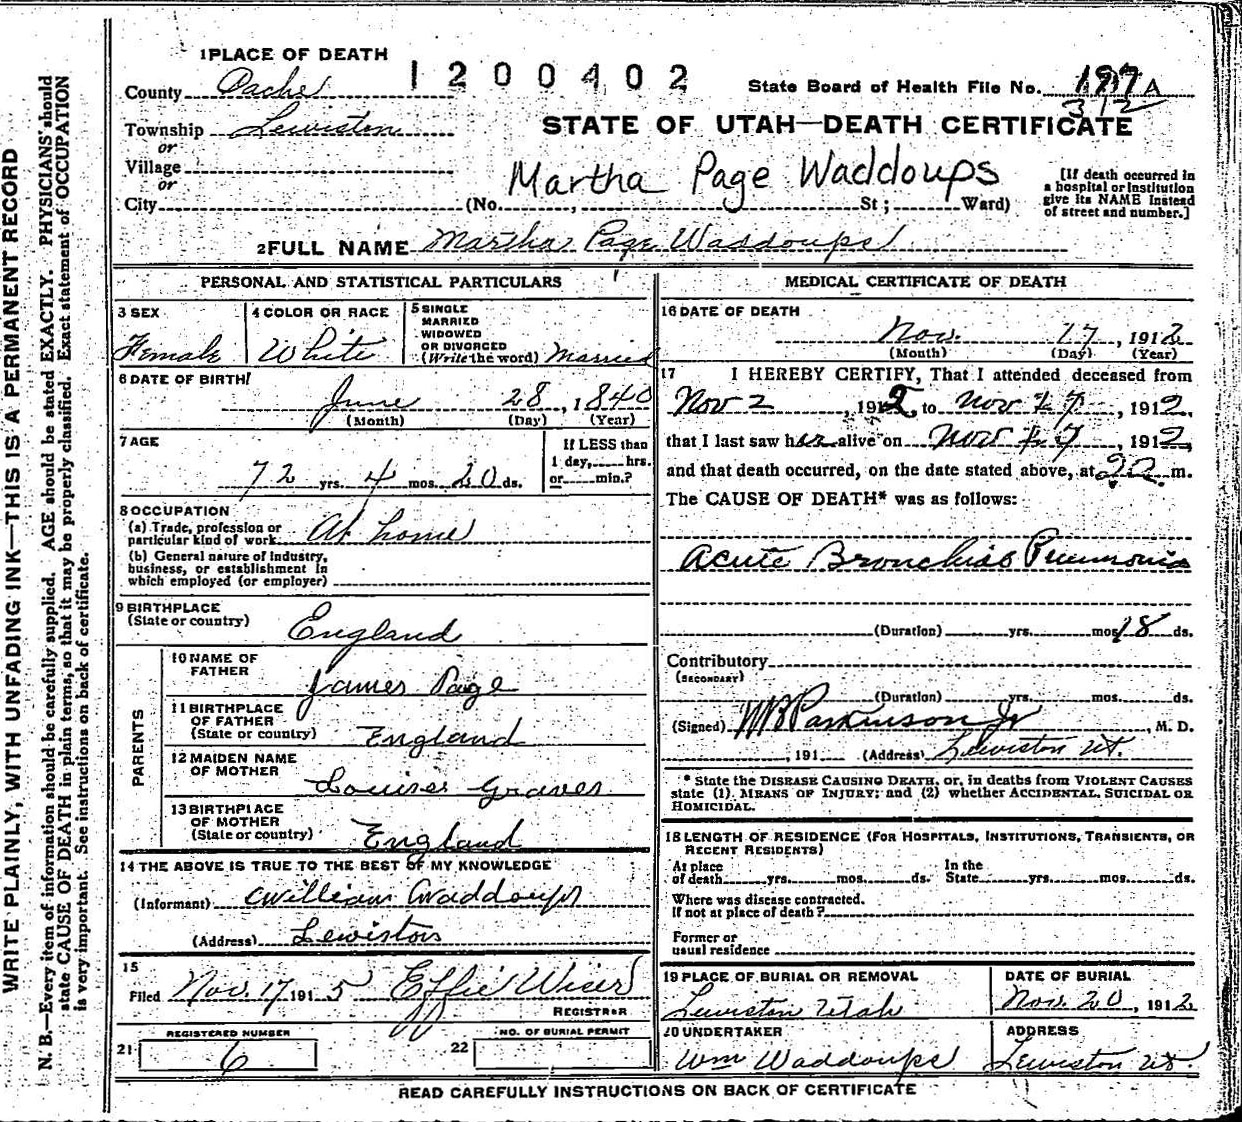 WRITE PLAINLY, WITH UNFADING INK—THIS IS A PERMANENT RECORD
N. B.—Every item of information should be carefully supplied. AGE should be stated EXACTLY. PHYSICIANS should
state CAUSE OF DEATH in plain terms, so that it may be properly classified. Exact statement of OCCUPATION
is very important. See instructions on back of certificate.
1 PLACE OF DEATH
1200402
County Cache
State Board of Health File No. 197 A
312
Township Lewiston
STATE OF UTAH—DEATH CERTIFICATE
or
Village
or
Martha Page Waddoups
[If death occurred in
a hospital or institution
give its NAME instead
of street and number.]
City (No. , St ; Ward)
2 FULL NAME Martha Page Waddoups
PERSONAL AND STATISTICAL PARTICULARS
3 SEX
Female
4 COLOR OR RACE
White
5 SINGLE
MARRIED
WIDOWED
OR DIVORCED
(Write the word) Married
6 DATE OF BIRTH
June 28, 1840
(Month) (Day) (Year)
7 AGE
72 yrs. 4 mos. 20 ds.
If LESS than
1 day, hrs.
or min.?
8 OCCUPATION
(a) Trade, profession or
particular kind of work At home
(b) General nature of industry,
business, or establishment in
which employed (or employer)
9 BIRTHPLACE
(State or country) England
PARENTS
10 NAME OF
FATHER James Page
11 BIRTHPLACE
OF FATHER
(State or country) England
12 MAIDEN NAME
OF MOTHER Louise Graves
13 BIRTHPLACE
OF MOTHER
(State or country) England
14 THE ABOVE IS TRUE TO THE BEST OF MY KNOWLEDGE
(Informant) William Waddoups
(Address) Lewiston
15
Filed Nov. 17 1915 Effie Wiser
REGISTRAR
REGISTERED NUMBER
21 6
NO. OF BURIAL PERMIT
22
MEDICAL CERTIFICATE OF DEATH
16 DATE OF DEATH
Nov. 17, 1912
(Month) (Day) (Year)
17 I HEREBY CERTIFY, That I attended deceased from
Nov 2, 1912, to Nov 17, 1912,
that I last saw her alive on Nov 17, 1912,
and that death occurred, on the date stated above, at 2 a. m.
The CAUSE OF DEATH* was as follows:
Acute Bronchial Pneumonia
(Duration) yrs. mos 18 ds.
Contributory
(SECONDARY)
(Duration) yrs. mos. ds.
(Signed) WB Parkinson Jr, M. D.
, 191 (Address) Lewiston Ut.
* State the DISEASE CAUSING DEATH, or, in deaths from VIOLENT CAUSES
state (1). MEANS OF INJURY; and (2) whether ACCIDENTAL, SUICIDAL OR
HOMICIDAL.
18 LENGTH OF RESIDENCE (FOR HOSPITALS, INSTITUTIONS, TRANSIENTS, OR
RECENT RESIDENTS)
At place
of death yrs. mos. ds.
In the
State yrs. mos. ds.
Where was disease contracted.
If not at place of death?
Former or
usual residence
19 PLACE OF BURIAL OR REMOVAL
Lewiston Utah
DATE OF BURIAL
Nov. 20, 1912
20 UNDERTAKER
Wm Waddoups
ADDRESS
Lewiston Ut.
READ CAREFULLY INSTRUCTIONS ON BACK OF CERTIFICATE